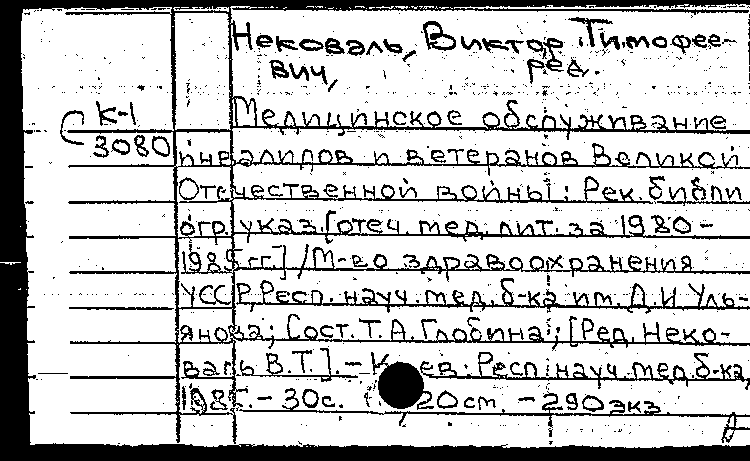 Нековаль, Виктор Тимофее-
вич, ред.
К-1
С 3080
Медицинское обслуживание
инвалидов и ветеранов Великой
Отечественной войны: Рек. библи
огр. указ. [отеч. мед. лит. за 1980-
1985 гг.] / М-во здравоохранения
УССР, Респ. науч. мед. б-ка им. Д. И. Уль-
янова; Сост. Т. А. Глобина; [Ред. Неко-
валь В. Т.]. - Киев: Респ. науч. мед. б-ка,
1985. - 30с. 20 см. - 290 экз.